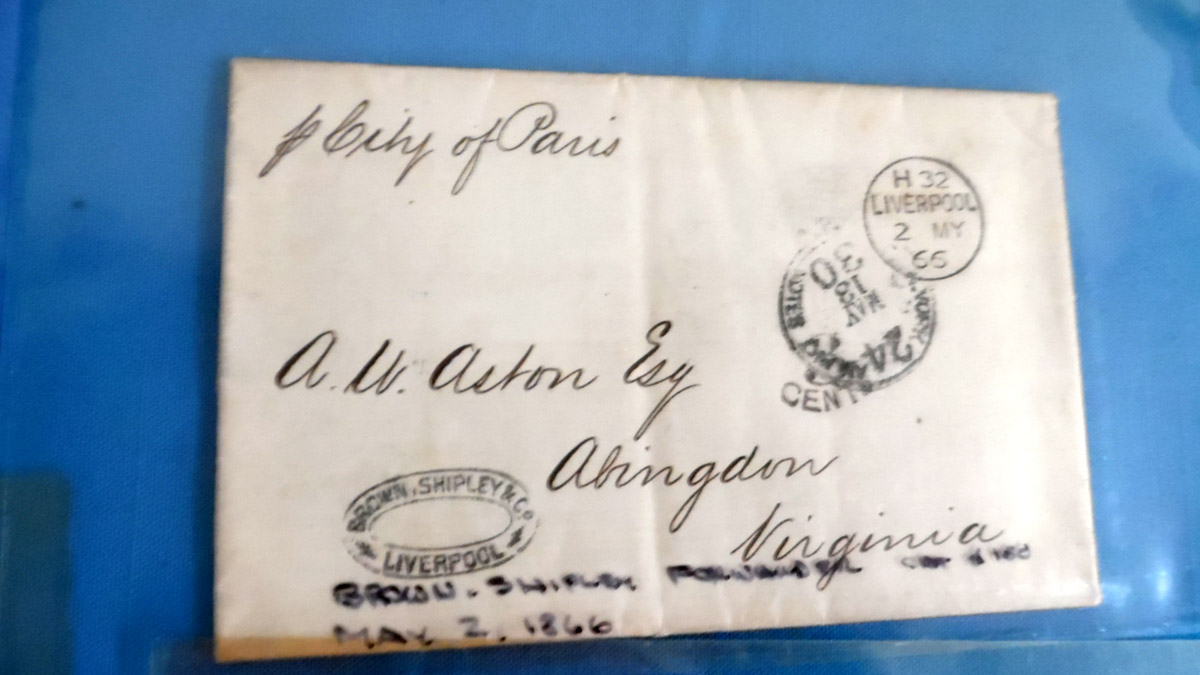 p City of Paris
H 32
LIVERPOOL
2 MY
66
30
18
MAY
24
CENTS
NOTES
A. W. Aston Esq
Abingdon
Virginia
BROWN, SHIPLEY & Co
LIVERPOOL
BROWN. SHIPLEY FORWARDER CAT $
MAY 2, 1866